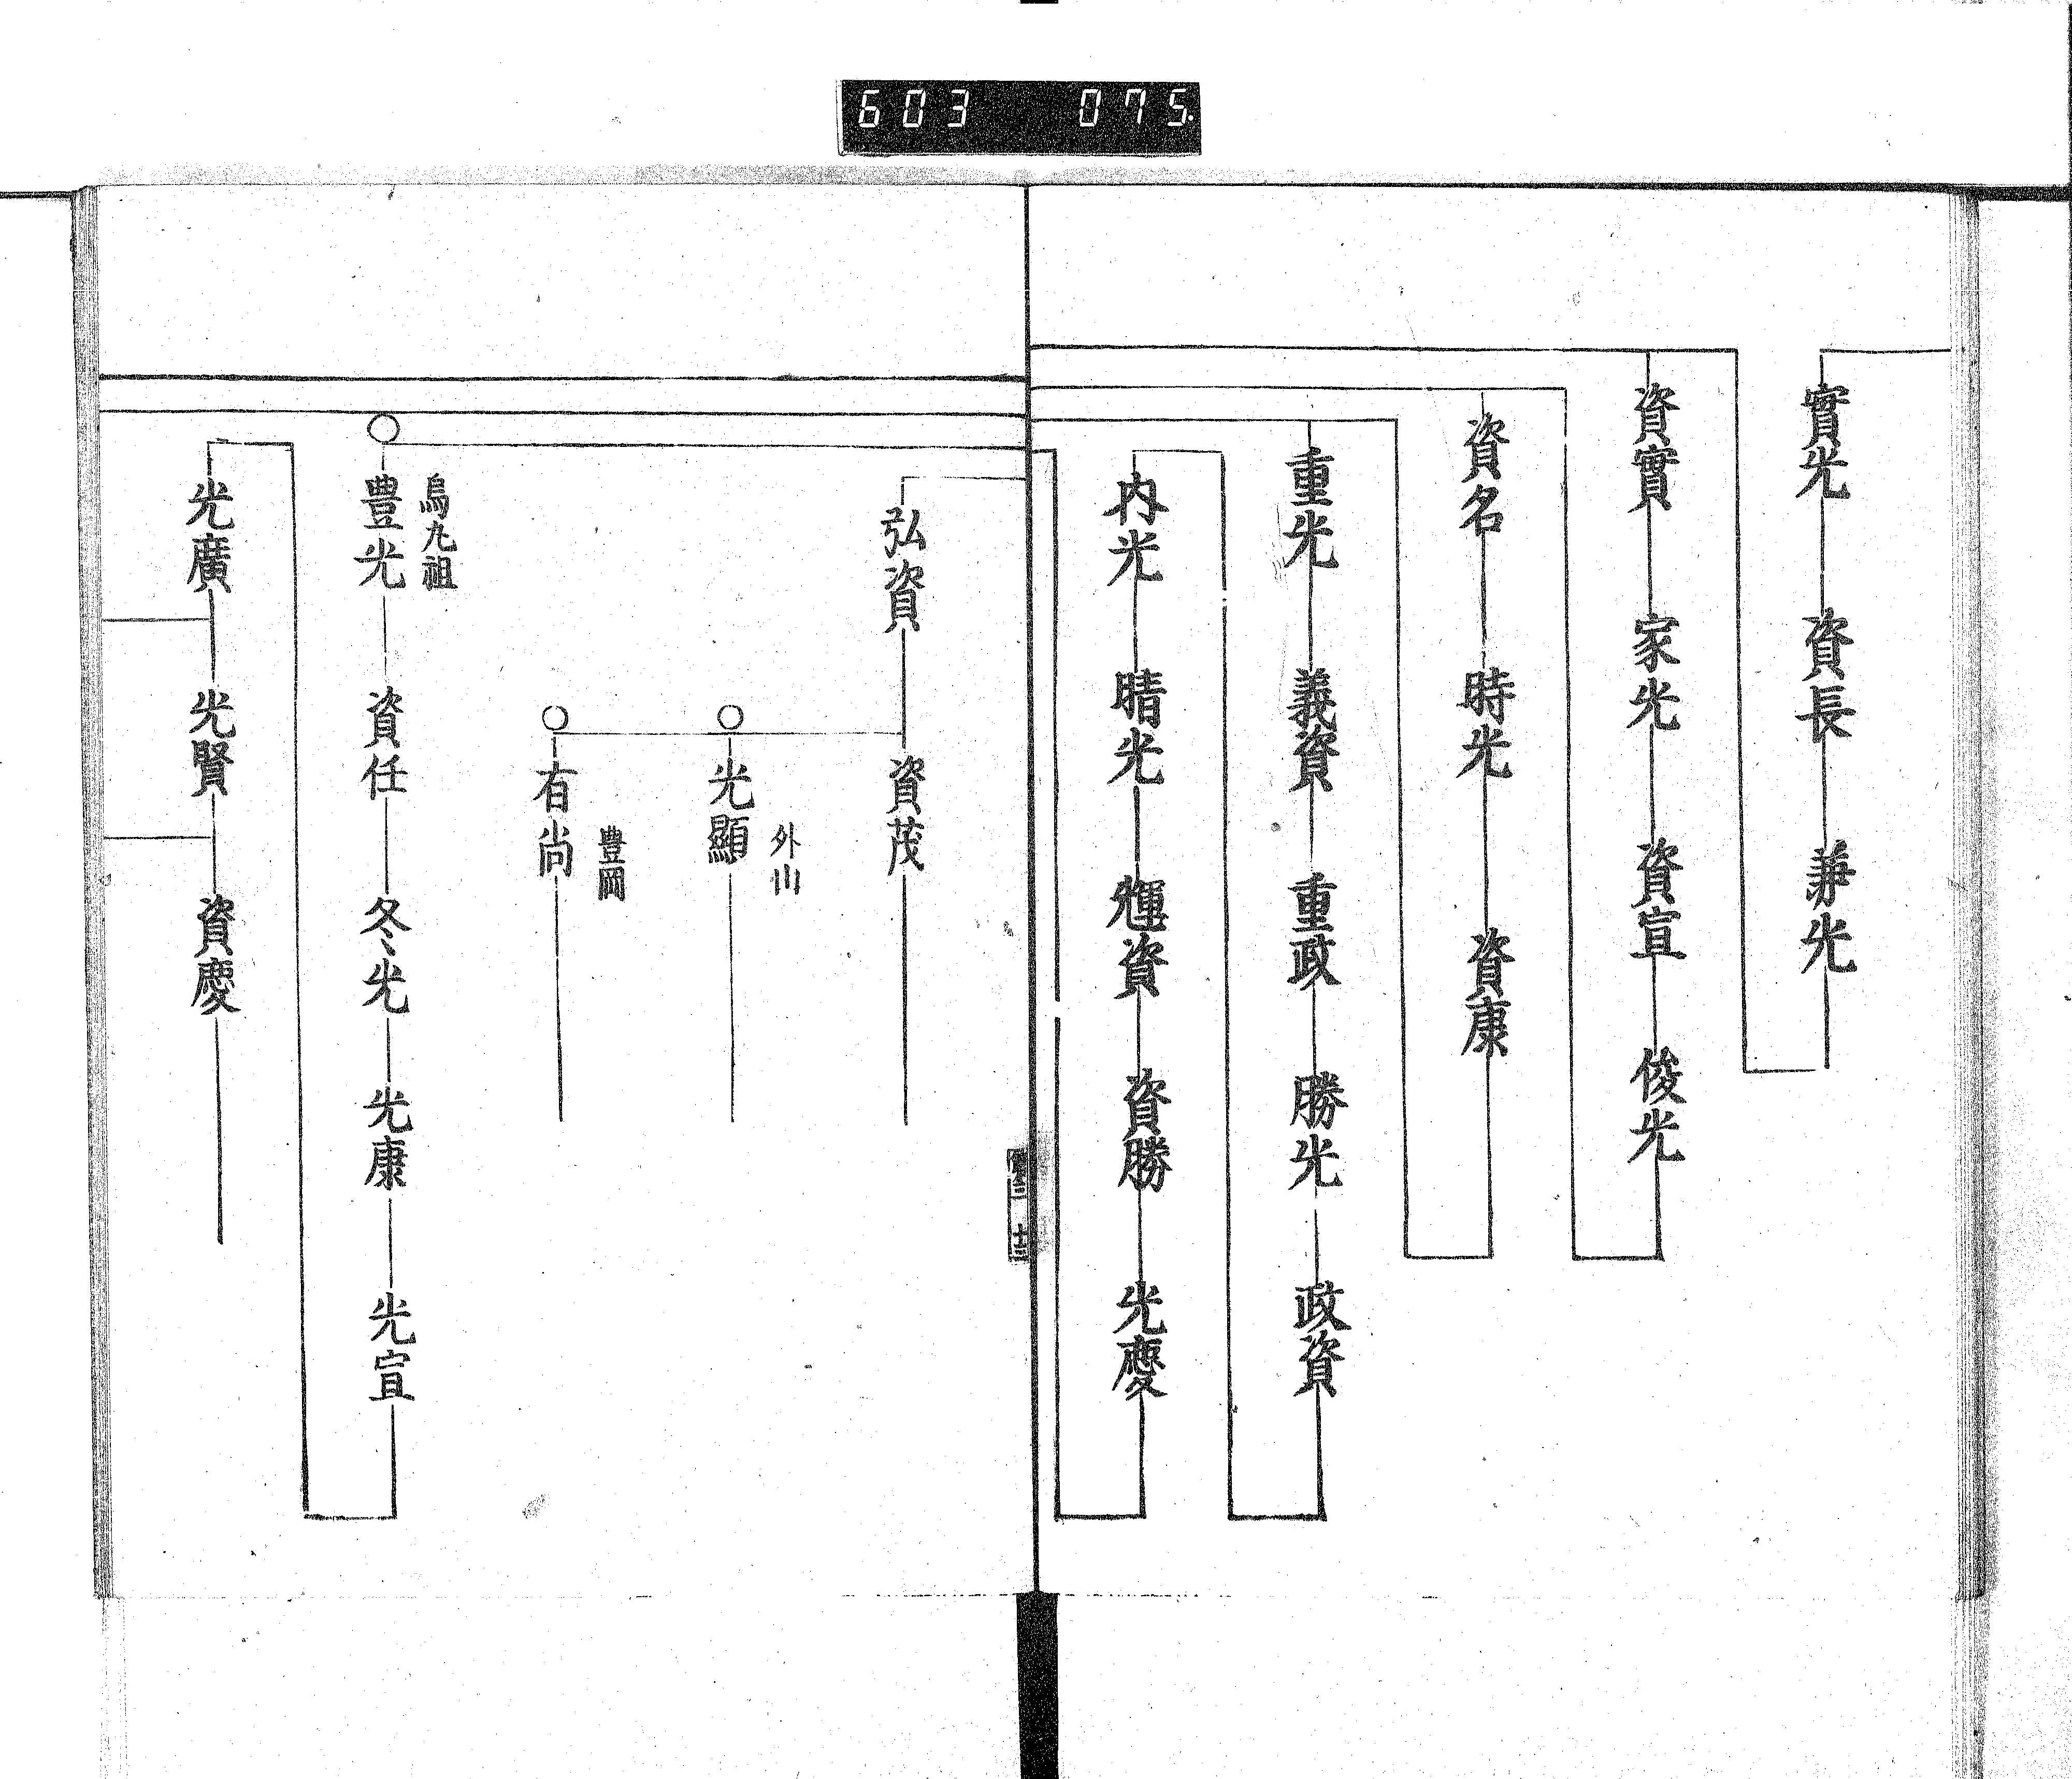 603 075
實光 資長 兼光
資實 家光 資宣 俊光
資名 時光 資康
重光 義資 重政 勝光 政資
内光 晴光 輝資 資勝 光慶
弘資 資茂
外山
光顯
豊岡
有尚
烏丸祖
豊光 資任 冬光 光康 光宣
光廣 光賢 資慶
十三